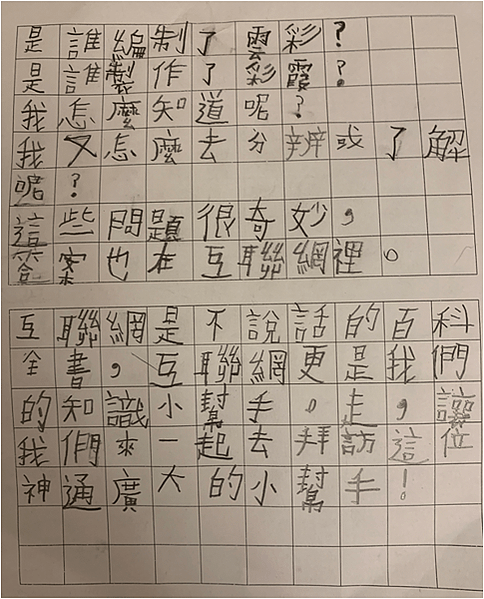 是誰編制了雲彩？
是誰製作了彩霞？
我怎麼知道呢？
我又怎麼去分辨或了解
呢？
這些問題很奇妙，
答案也在互聯網裡。
互聯網是不說話的百科
全書，互聯網更是我們
的知識小幫手。走，讓
我們來一起去拜訪這位
神通廣大的小幫手！